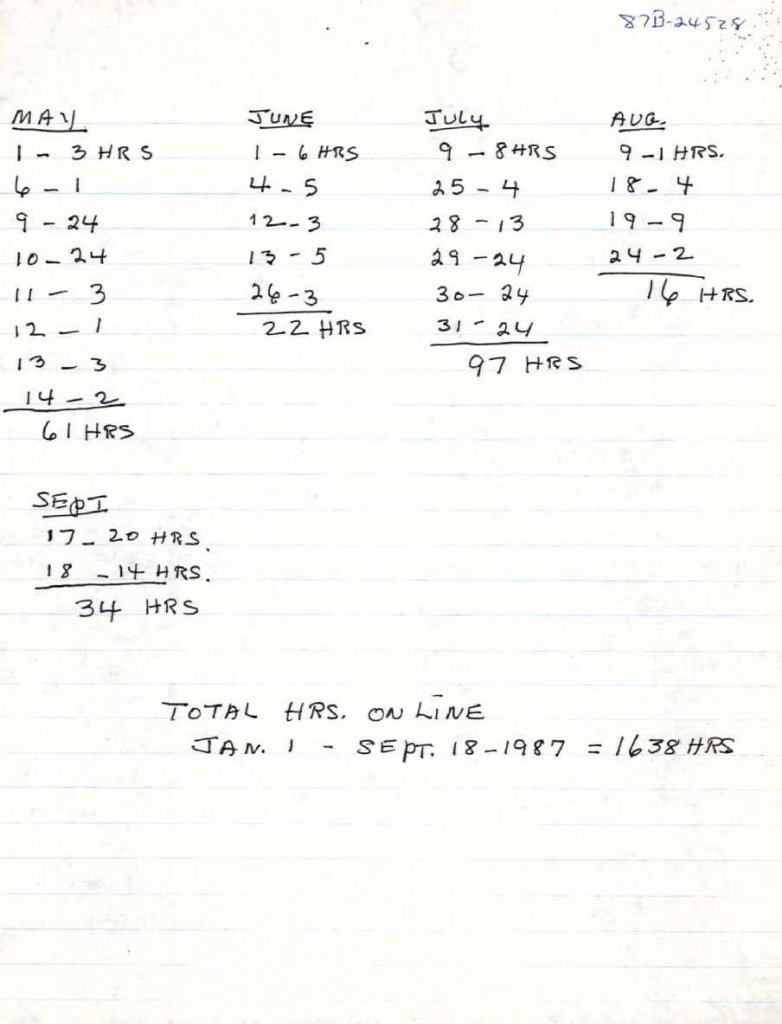 87B-24528
MAY
1 - 3 HRS
6 - 1
9 - 24
10 - 24
11 - 3
12 - 1
13 - 3
14 - 2
61 HRS
JUNE
1 - 6 HRS
4 - 5
12 - 3
13 - 5
26 - 3
22 HRS
JULY
9 - 8 HRS
25 - 4
28 - 13
29 - 24
30 - 24
31 - 24
97 HRS
AUG.
9 - 1 HRS.
18 - 4
19 - 9
24 - 2
16 HRS.
SEPT
17 - 20 HRS.
18 - 14 HRS.
34 HRS
TOTAL HRS. ON LINE
JAN. 1 - SEPT. 18 - 1987 = 1638 HRS